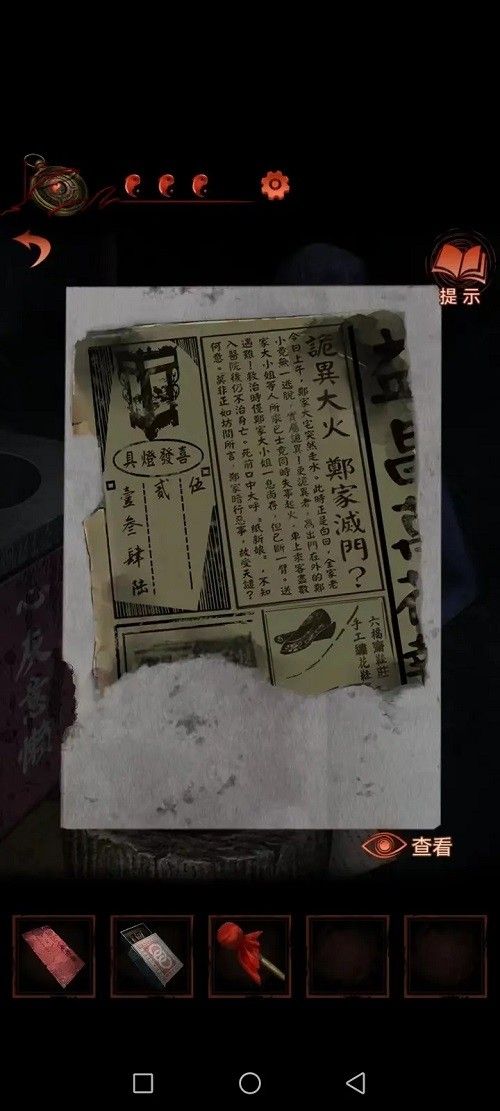 提示
詭異大火 鄭家滅門?
今日上午,鄭家大宅突然走水。此時正是白日,全家老
小竟無一逃脫,實屬詭異!更詭異者,爲出門在外的鄭
家大小姐等人所家巴士竟同時失事起火,車上乘客盡數
遇難!救治時僅鄭家大小姐一息尚存,但已斷一臂。送
入醫院後仍不治身亡。死前口中大呼,紙新娘,不知
何意。莫非正如坊間所言,鄭家暗行忌事,故受天譴?
喜發燈具
伍
貳
壹叁肆陸
手工繡花鞋
查看